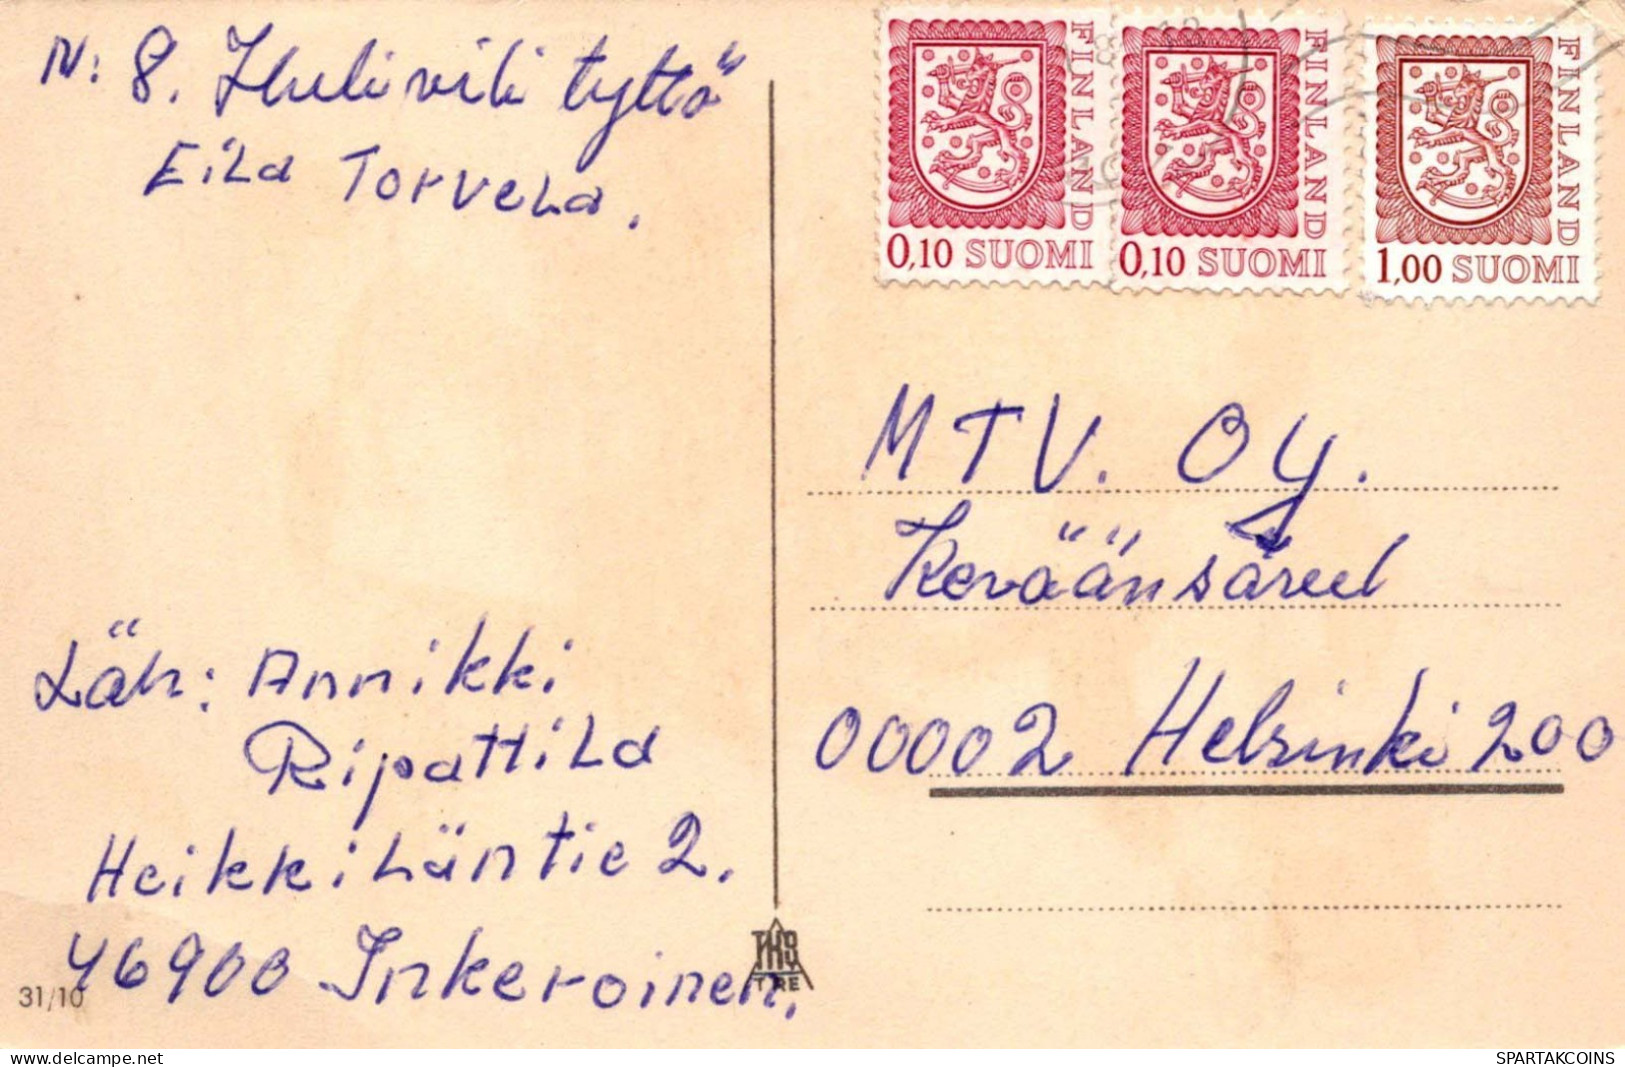 N: 8. Hulivili tyttö
Eila Torvela.
Läh: Annikki
Ripattila
Heikkiläntie 2.
46900 Inkeroinen.
31/10
TKO
TRE
FINLAND
0,10 SUOMI
FINLAND
0,10 SUOMI
FINLAND
1,00 SUOMI
MTV. OY.
Keväänsävel
00002 Helsinki 200
www.delcampe.net
SPARTAKCOINS